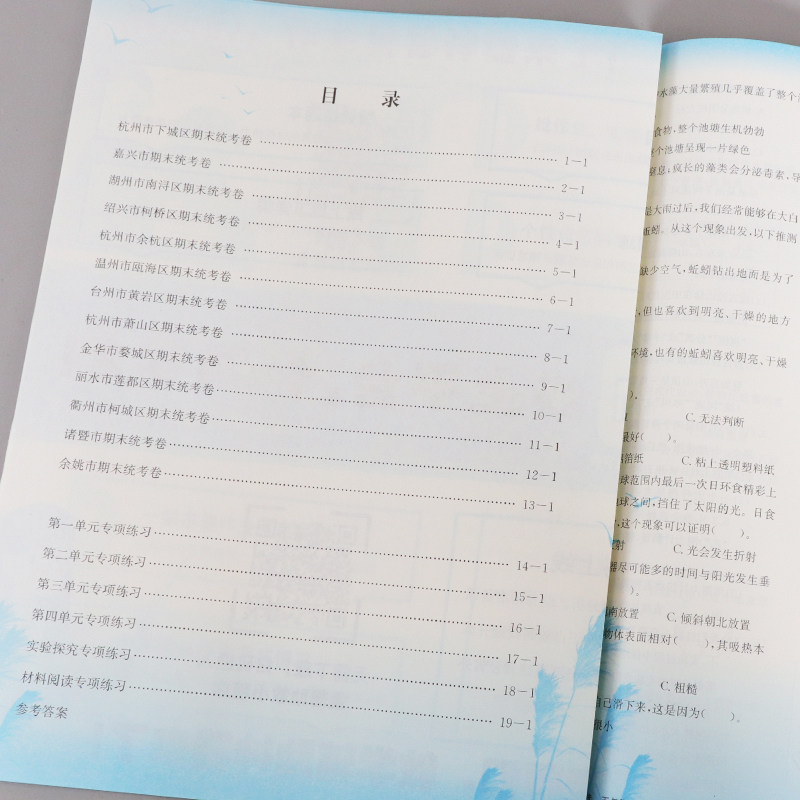 目 录
杭州市下城区期末统考卷 1-1
嘉兴市期末统考卷 2-1
湖州市南浔区期末统考卷 3-1
绍兴市柯桥区期末统考卷 4-1
杭州市余杭区期末统考卷 5-1
温州市瓯海区期末统考卷 6-1
台州市黄岩区期末统考卷 7-1
杭州市萧山区期末统考卷 8-1
金华市婺城区期末统考卷 9-1
丽水市莲都区期末统考卷 10-1
衢州市柯城区期末统考卷 11-1
诸暨市期末统考卷 12-1
余姚市期末统考卷 13-1
第一单元专项练习 14-1
第二单元专项练习 15-1
第三单元专项练习 16-1
第四单元专项练习 17-1
实验探究专项练习 18-1
材料阅读专项练习 19-1
参考答案
水藻大量繁殖几乎覆盖了整个
食物,整个池塘生机勃勃
个池塘呈现一片绿色
窒息,疯长的藻类会分泌毒素,导
是大雨过后,我们经常能够在大白
蚯蚓。从这个现象出发,以下推测
缺少空气,蚯蚓钻出地面是为了
,但也喜欢到明亮、干燥的地方
环境,也有的蚯蚓喜欢明亮、干燥
)。
C. 无法判断
最好( )。
铝箔纸 C. 粘上透明塑料纸
球范围内最后一次日环食精彩上
地球之间,挡住了太阳的光。日食
,这个现象可以证明( )。
射 C. 光会发生折射
器尽可能多的时间与阳光发生垂
)。
南放置 C. 倾斜朝北放置
物体表面相对( ),其吸热本
C. 粗糙
自己滑下来,这是因为( )。
很小